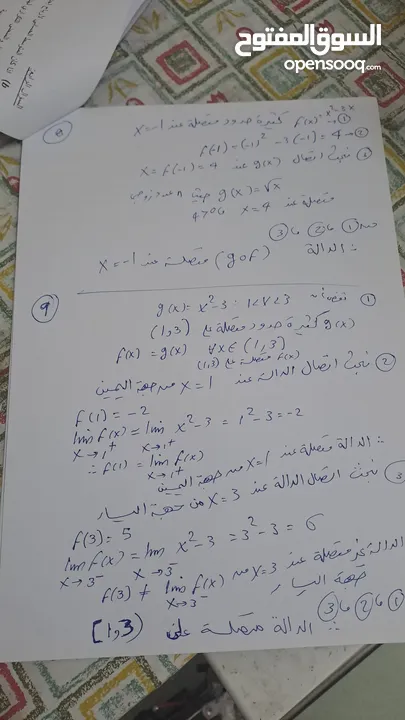 السوق المفتوح
opensooq.com
8
① f(x) = x²-3x كثيرة حدود متصلة عند x=-1
② f(-1) = (-1)² - 3(-1) = 4
③ نبحث اتصال g(x) عند x = f(-1) = 4
g(x) = √x حيث n عدد زوجي
متصلة عند x = 4 4>0
من ① و ② و ③
∴ الدالة (gof) متصلة عند x=-1
9
① نفرض g(x) = x²-3 : 1<x<3
g(x) كثيرة حدود متصلة على (1,3)
f(x) = g(x) ∀x∈(1,3)
f(x) متصلة على (1,3)
② نبحث اتصال الدالة عند x=1 من جهة اليمين
f(1) = -2
lim f(x) = lim x²-3 = 1²-3 = -2
x→1⁺ x→1⁺
∴ f(1) = lim f(x)
x→1⁺
∴ الدالة متصلة عند x=1 من جهة اليمين
③ نبحث اتصال الدالة عند x=3 من جهة اليسار
f(3) = 5
lim f(x) = lim x²-3 = 3²-3 = 6
x→3⁻ x→3⁻
f(3) ≠ lim f(x)
x→3⁻
الدالة غير متصلة عند x=3 من جهة اليسار
① و ② و ③
∴ الدالة متصلة على [1,3)